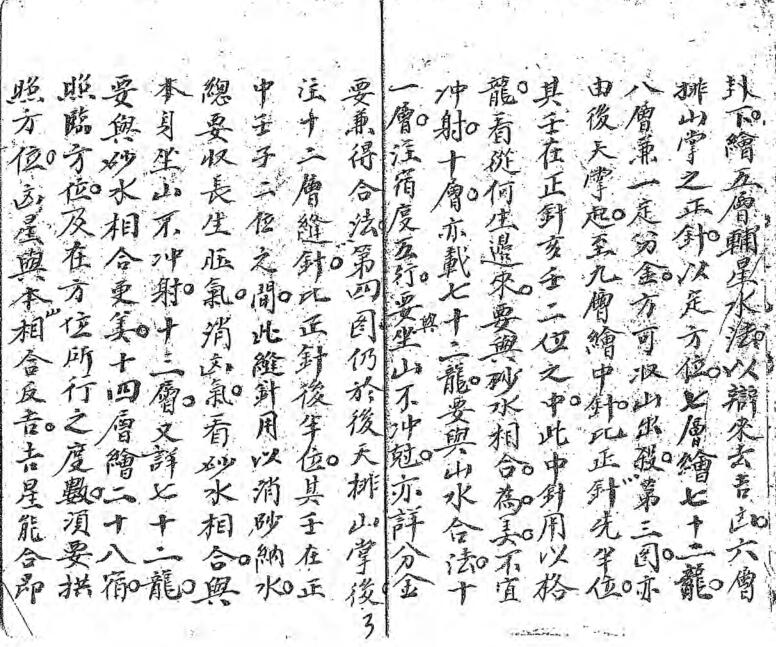 卦下。繪五層輔星水法。以辯來去吉凶。六層
排山掌之正針。以定方位。七層繪七十二龍。
八層兼一定分金。方可收山出殺。第三圖。亦
由後天掌起。至九層繪中針。比正針先半位。
其壬在正針亥壬二位之中。此中針用以格
龍。看從何生邉來。要與砂水相合。為美。不宜
冲射。十層。亦載七十二龍。要與山水合法。十
一層。注宿度五行。要坐山不冲尅。亦詳分金
與
要兼得合法。第四圖仍於後天排山掌後
注十二層縫針。比正針後半位。其壬在正
中壬子二位之間。此縫針用以消砂納水。
總要收長生旺氣。消凶氣。看砂水相合。與
本身坐山不冲射。十三層。又詳七十二龍。
要與砂水相合更美。十四層繪二十八宿。
照臨方位。及在方位所行之度數。須要拱
照方位。凶星與本山相合反吉。吉星能合即
3